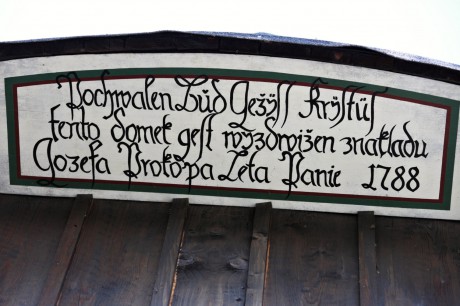 Pochwalen Bůd Gežjss Krÿstus
tento domek gest wyzdwižen znakladu
Gozefa Prokopa Leta Panie 1788